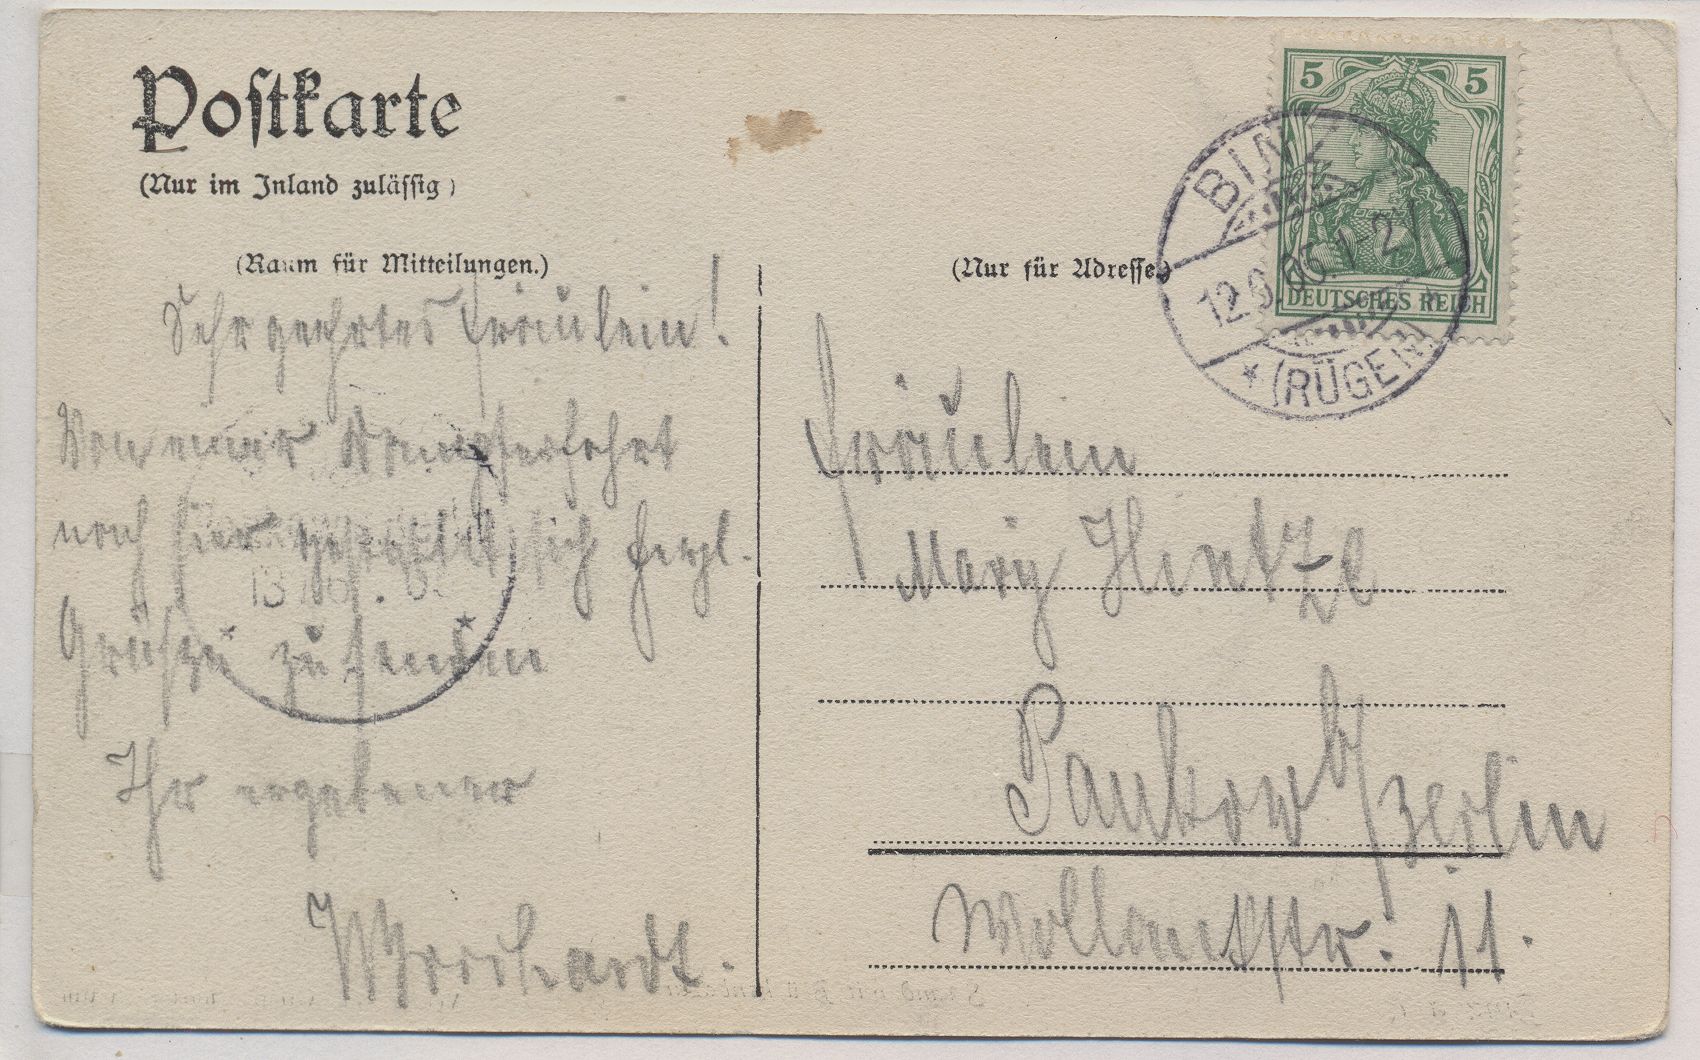 Postkarte
(Nur im Inland zulässig)
(Raum für Mitteilungen.)
(Nur für Adresse.)
5 5
DEUTSCHES REICH
BINZ
12.6.06.1-2
* (RÜGEN)
Sehr geehrtes Fräulein!
Von einer Dampferfahrt
nach hier gestattet sich herzl.
Grüße zu senden
Ihr ergebener
13.6.
Fräulein
Mary Hintze
Pankow b/Berlin
Wollankstr. 11.